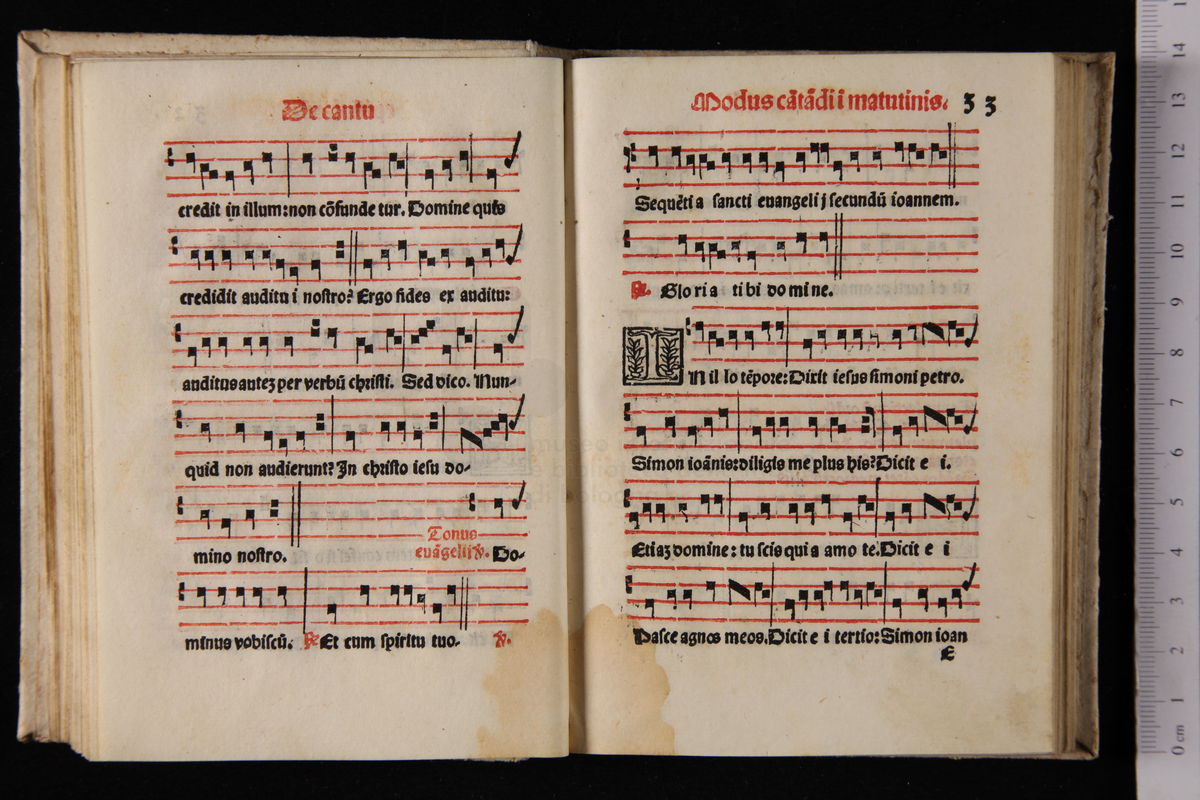 De cantu
credit in illum:non cõfunde tur. Domine quis
credidit auditu i nostro? Ergo fides ex auditu:
auditus autez per verbũ christi. Sed dico. Nun-
quid non audierunt? In christo iesu do-
mino nostro.
Tonus
euãgelij ℣. Do-
minus vobiscũ. ℟ Et cum spiritu tuo. ℣.
Modus cãtãdi i matutinis. 33
Sequẽti a sancti euangeli j secundũ ioannem.
℟. Glo ri a ti bi do mi ne.
IN il lo tẽpore: Dixit iesus simoni petro.
Simon ioãnis: diligis me plus his? Dicit e i.
Etiaz domine: tu scis qui a amo te. Dicit e i
Pasce agnos meos. Dicit e i tertio: Simon ioan
E
museo
0 cm 1 2 3 4 5 6 7 8 9 10 11 12 13 14